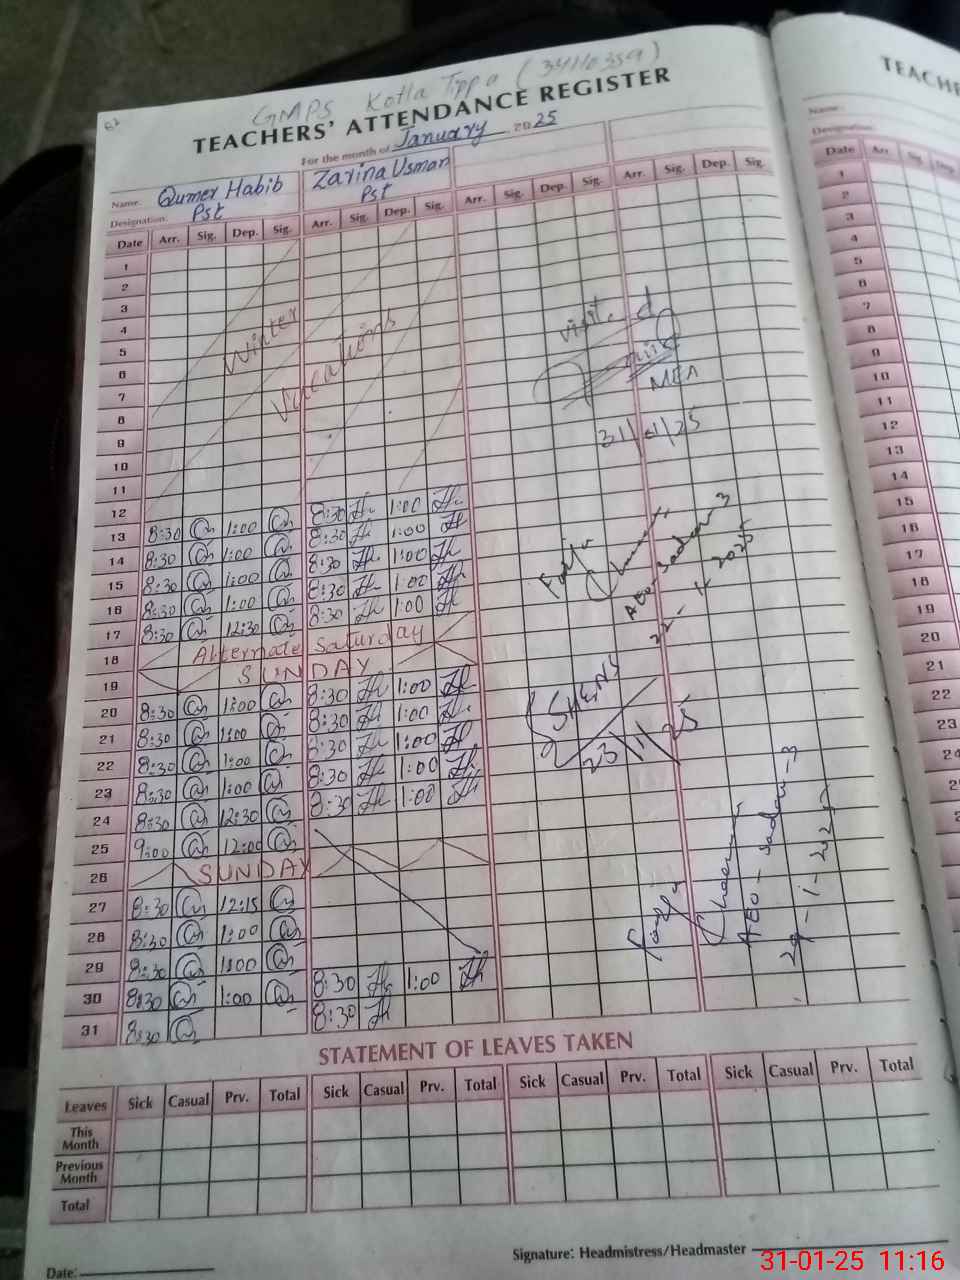 62
GMPS Kotla Tippa (34110359)
TEACHERS' ATTENDANCE REGISTER
For the month of January, 2025
Name: Qumer Habib Zarina Usman
Designation: Pst Pst
Date Arr. Sig. Dep. Sig. Arr. Sig. Dep. Sig. Arr. Sig. Dep. Sig. Arr. Sig. Dep. Sig.
1
2
3
4
5
6
7
8
9
10
11
Winter
Vacations
visited
MEA
31/01/25
12 8:30 1:00
13 8:30 1:00 8:30 1:00
14 8:30 1:00 8:30 1:00
15 8:30 1:00 8:30 1:00
16 8:30 1:00 8:30 1:00
17 8:30 12:30
18 Alternate Saturday
19 SUNDAY 8:30 1:00
20 8:30 1:00 8:30 1:00
21 8:30 1:00 8:30 1:00
22 8:30 1:00 8:30 1:00
23 8:30 1:00 8:30 1:00
24 8:30 12:30
25 9:00 12:00
26 SUNDAY
27 8:30 12:15
28 8:30 1:00
29 8:30 1:00
30 8:30 1:00 8:30 1:00
31 8:30 8:30
22-1-2025
23/1/25
29-1-2025
STATEMENT OF LEAVES TAKEN
Leaves Sick Casual Prv. Total Sick Casual Prv. Total Sick Casual Prv. Total Sick Casual Prv. Total
This Month
Previous Month
Total
Date:
Signature: Headmistress/Headmaster
31-01-25 11:16
Name:
Designation:
Date Arr. Sig. Dep.
1
2
3
4
5
6
7
8
9
10
11
12
13
14
15
16
17
18
19
20
21
22
23